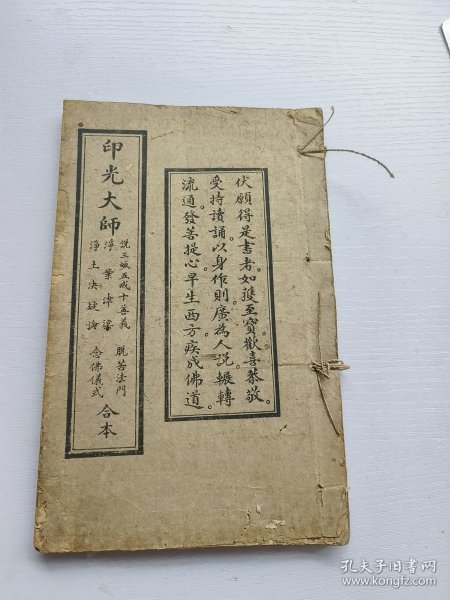 伏願得是書者。如獲至寶。歡喜恭敬。
受持讀誦。以身作則。廣為人說。輾轉
流通。發菩提心。早生西方。疾成佛道。
印光大師
說三皈五戒十善義
脫苦法門
淨業津梁
淨土決疑論
念佛儀式
合本
孔夫子旧书网
www.kongfz.com